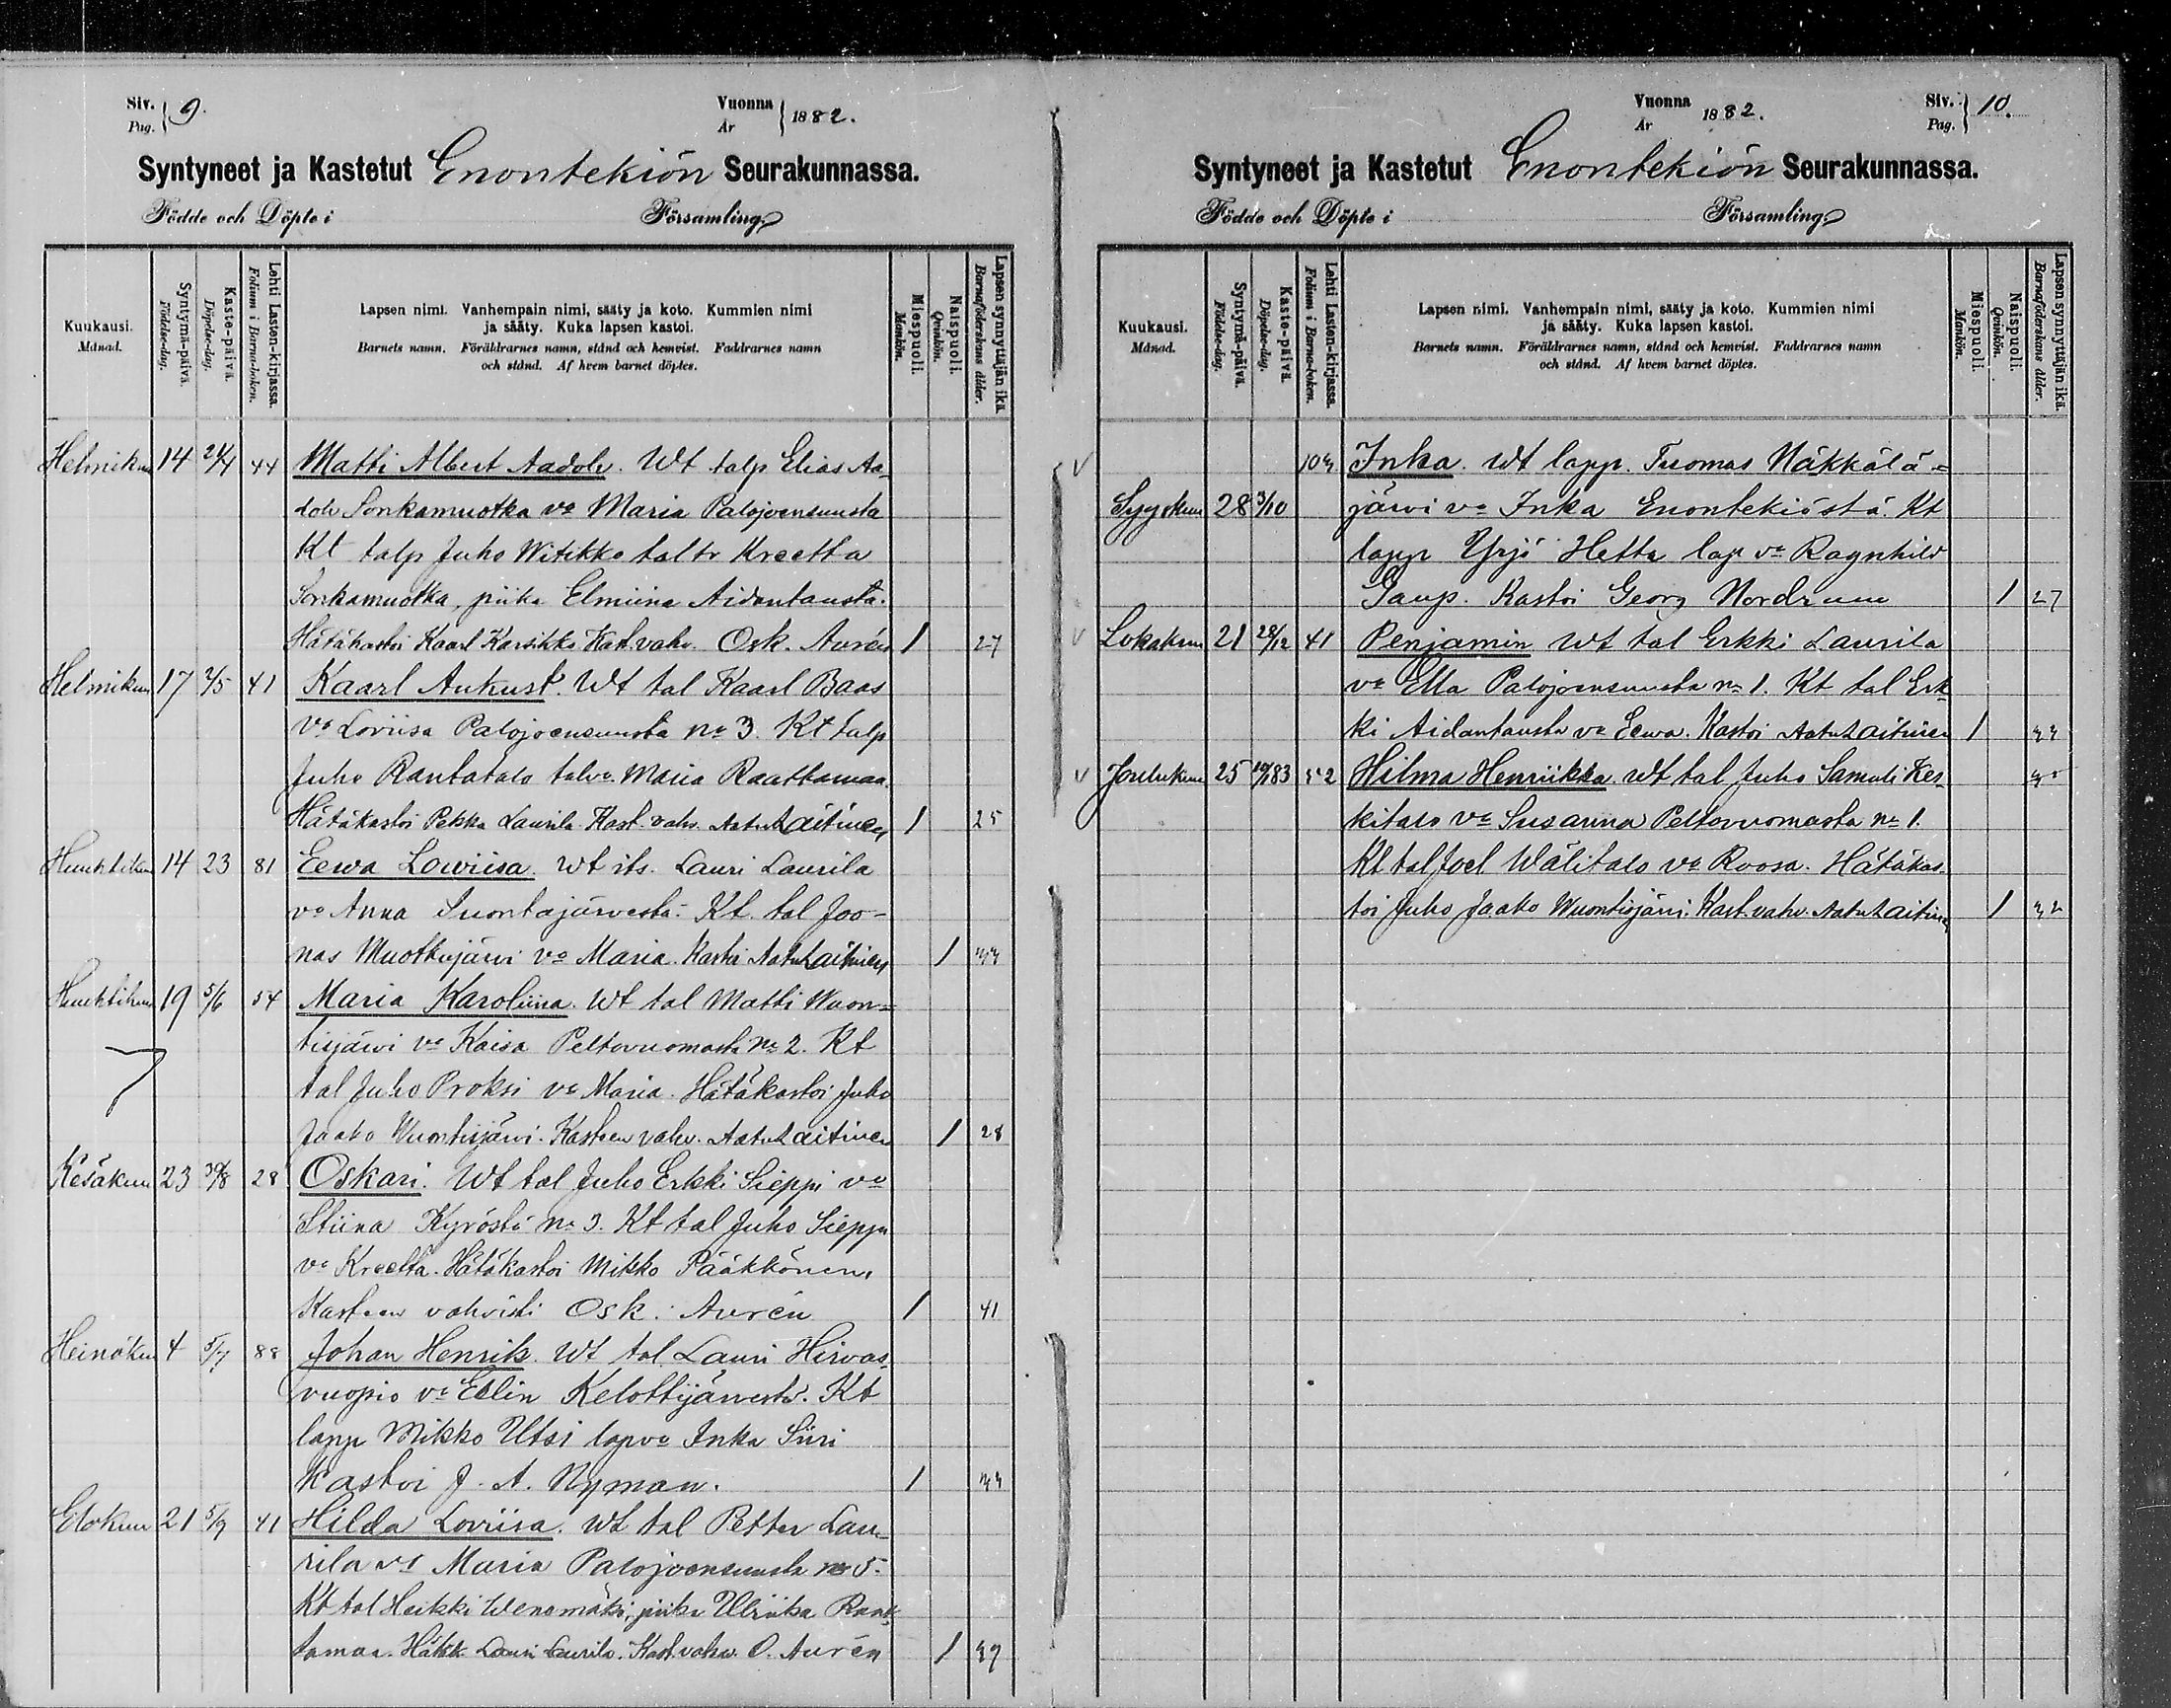 Siv. Pag. 9.
Vuonna År 1882.
Syntyneet ja Kastetut Enontekiön Seurakunnassa.
Födde och Döpte i Församling
Kuukausi. Månad.
Syntymä-päivä. Födelse-dag.
Kaste-päivä. Döpelse-dag.
Lehti Lasten-kirjassa. Folium i Barna-boken.
Lapsen nimi. Vanhempain nimi, sääty ja koto. Kummien nimi
ja sääty. Kuka lapsen kastoi.
Barnets namn. Föräldrarnes namn, stånd och hemvist. Faddrarnes namn
och stånd. Af hvem barnet döptes.
Miespuoli. Mankön.
Naispuoli. Qvinkön.
Lapsen synnyttäjän ikä. Barnaföderskans ålder.
Helmikuu 14 44 Matti Albert Aadolv. Wt talp Elias Aa-
dolv Sonkamuotka vo Maria Palojoensuusta
Kt talp Juho Witikko taltr Kreetta
Sonkamuotka, piika Elmiina Aidantausta.
Hätäkastoi Kaarl Karsikko Kast. vahv. Osk. Aurén 1 27
Helmikuu 17 2/5 41 Kaarl Aukust. Wt tal Kaarl Baas
vo Loviisa Palojoensuusta No 3. Kt talp
Juho Rantatalo talvo Maria Raattamaa.
Hätäkastoi Pekka Laurila Kast. vahv. Aatu Laitinen 1 25
Huuhtikuu 14 23 81 Eewa Lowiisa. Wt its. Lauri Laurila
vo Anna Suontajärvestä. Kt. tal Joo-
nas Muotkajärvi vo Maria. Kastoi Aatu Laitinen 1
Huuhtikuu 19 5/6 54 Maria Karoliina. Wt tal Matti Wuon-
tisjärvi vo Kaisa Peltovuomasta No 2. Kt
tal Juho Proksi vo Maria. Hätäkastoi Juho
Jaako Wuontisjärvi. Kasteen vahv. Aatu Laitinen 1 28
Kesäkuu 23 30/8 28 Oskari. Wt tal Juho Erkki Sieppi vo
Stiina Kyröstä No 3. Kt tal Juho Sieppi
vo Kreetta. Hätäkastoi Mikko Pääkkönen.
Kasteen vahvisti Osk. Aurén 1 41
Heinäkuu 4 5/7 88 Johan Henrik. Wt tal. Lauri Hirvas-
vuopio vo Ellin Kelottijärvestä. Kt
lapp Mikko Utsi lapvo Inka Siiri
Kastoi J. A. Nyman. 1
Elokuu 21 5/9 41 Hilda Loviisa. Wt tal Petter Lau-
rila vo Maria Palojoensuusta no 5.
Kt tal Heikki Wenomäki, piika Ulriika Raat-
tamaa. Hätäk. Lauri Laurila. Kast. vahv. O. Aurén 1 39
Vuonna År 1882.
Siv. Pag. 10.
Syntyneet ja Kastetut Enontekiön Seurakunnassa.
Födde och Döpte i Församling
Kuukausi. Månad.
Syntymä-päivä. Födelse-dag.
Kaste-päivä. Döpelse-dag.
Lehti Lasten-kirjassa. Folium i Barna-boken.
Lapsen nimi. Vanhempain nimi, sääty ja koto. Kummien nimi
ja sääty. Kuka lapsen kastoi.
Barnets namn. Föräldrarnes namn, stånd och hemvist. Faddrarnes namn
och stånd. Af hvem barnet döptes.
Miespuoli. Mankön.
Naispuoli. Qvinkön.
Lapsen synnyttäjän ikä. Barnaföderskans ålder.
Inka. Wt lapp. Tuomas Näkkälä-
Syyskuu 28 3/10 järvi vo Inka Enontekiöstä. Kt
lapp Yrjö Hetta lap vo Ragnhild
Gaup. Kastoi Georg Nordrum 1 27
Lokakuu 21 28/12 41 Penjamin Wt tal Erkki Laurila
vo Ella Palojoensuusta no 1. Kt tal Erk-
ki Aidantausta vo Eewa. Kastoi Aatu Laitinen 1
Joulukuu 25 52 Hilma Henriikka. Wt tal Juho Samuli Kes-
kitalo vo Susanna Peltovuomasta no 1.
Kt tal Joel Wälitalo vo Roosa. Hätäkas-
toi Juho Jaako Wuontisjärvi. Kast. vahv. Aatu Laitinen 1 32